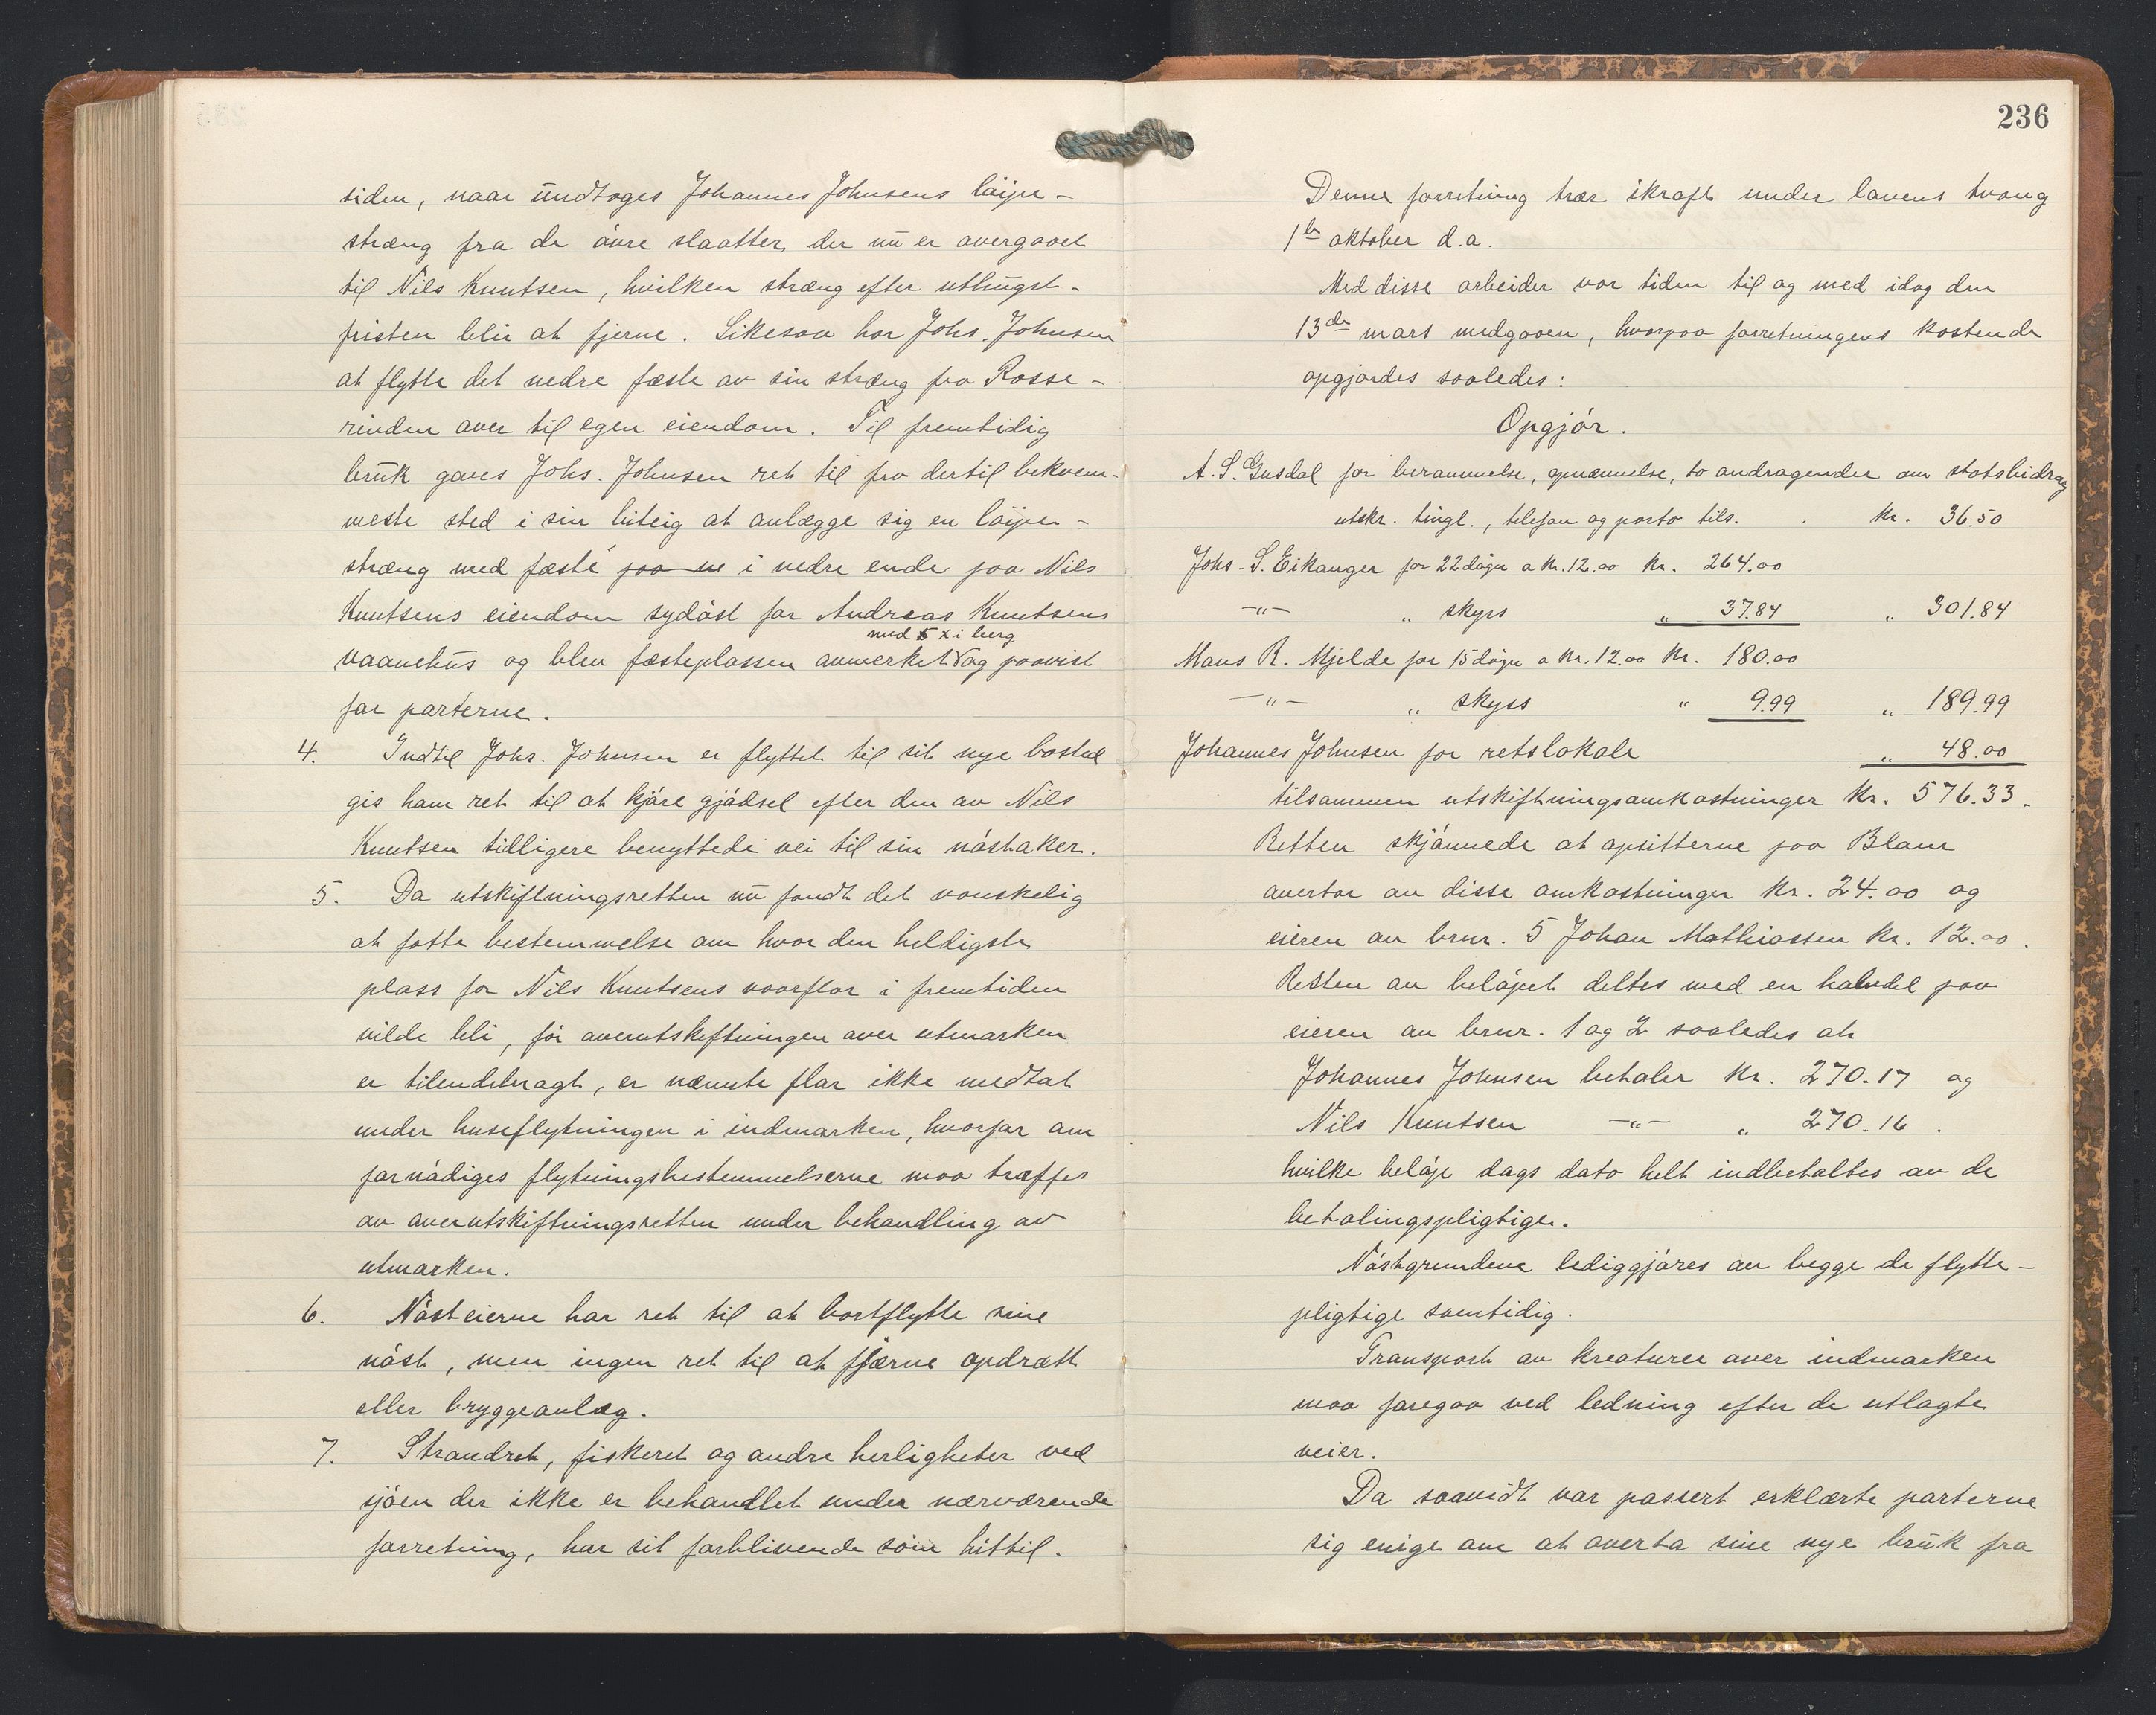 siden, naar undtages Johannes Johnsens løipe-
stræng fra de øvre slaatter, der nu er overgaaet
til Nils Knutsen, hvilken stræng efter uthugst-
fristen blir at fjerne. Likesaa har Johs. Johnsen
at flytte det nedre fæste av sin stræng fra Rosse-
rinden over til egen eiendom. Til fremtidig
bruk gaves Johs. Johnsen ret til fra dertil bekvem-
meste sted i sin biteig at anlægge sig en løipe-
stræng med fæste paa ne i nedre ende paa Nils
Knutsens eiendom sydøst for Andreas Knutsens
med 5 x i berg
vaanehus og blev fæsteplassen avmerket og paavist
for parterne.
4. Indtil Johs. Johnsen er flyttet til sit nye bosted
gis ham ret til at kjøre gjødsel efter den av Nils
Knutsen tidligere benyttede vei til sin nøstaker.
5. Da utskiftningsretten nu fandt det vanskelig
at fatte bestemmelse om hvor den heldigste
plass for Nils Knutsens vaarflor i fremtiden
vilde bli, før overutskiftningen over utmarken
er tilendebragt, er nævnte flor ikke medtat
under huseflytningen i indmarken, hvorfor om
fornødiges flytningsbestemmelserne maa træffes
av overutskiftningsretten under behandling av
utmarken.
6. Nøsteierne har ret til at bortflytte sine
nøst, men ingen ret til at fjerne opdrætt
eller bryggeanlæg.
7. Strandret, fiskeret og andre herligheter ved
sjøen der ikke er behandlet under nærværende
forretning, har sit forblivende som hittil.
236
Denne forretning trær ikraft under lovens tvang
1ste oktober d.a.
Med disse arbeider var tiden til og med idag den
13de mars medgaaen, hvorpaa forretningens kostende
opgjordes saaledes:
Opgjør.
A. S. Gusdal for berammelse, opnævnelse, to andragender om statsbidrag
utskr. tingl., telefon og porto tils. . Kr. 36.50
Johs. S. Eikanger for 22 døgn a Kr. 12.00 Kr. 264.00
-"- " skyss " 37.84 " 301.84
Mons R. Mjelde for 15 døgn a Kr. 12.00 Kr. 180.00
-"- " skyss " 9.99 " 189.99
Johannes Johnsen for retslokale " 48.00
tilsammen utskiftningsomkostninger Kr. 576.33.
Retten skjønnede at opsitterne paa Blom
overtar av disse omkostninger Kr. 24.00 og
eieren av brnr. 5 Johan Mathiassen Kr. 12.00.
Resten av beløpet deltes med en halvdel paa
eieren av brnr. 1 og 2 saaledes at
Johannes Johnsen betaler Kr. 270.17 og
Nils Knutsen -"- " 270.16.
hvilke beløp dags dato helt indbetaltes av de
betalingspligtige.
Nøstgrundene lediggjøres av begge de flytte-
pligtige samtidig.
Transport av kreaturer over indmarken
maa foregaa ved ledning efter de utlagte
veier.
Da saavidt var passert erklærte parterne
sig enige om at overta sine nye bruk fra